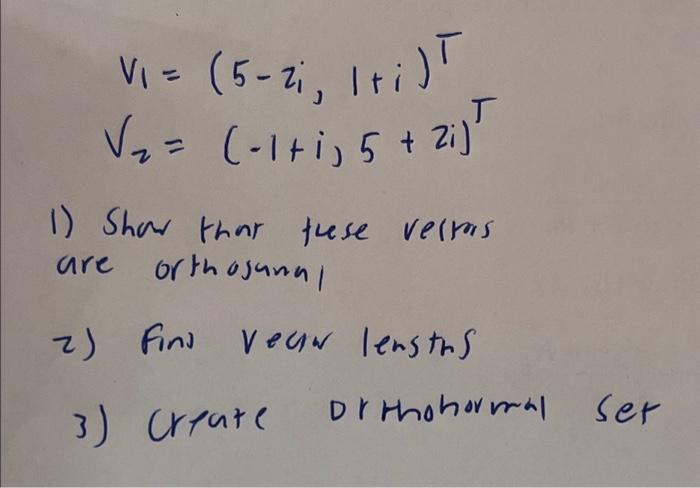 V1 = (5-2i, 1+i)^T
V2 = (-1+i, 5 + 2i)^T
1) Show that these vectors
are orthogonal
2) Find vector lengths
3) Create Orthonormal Set